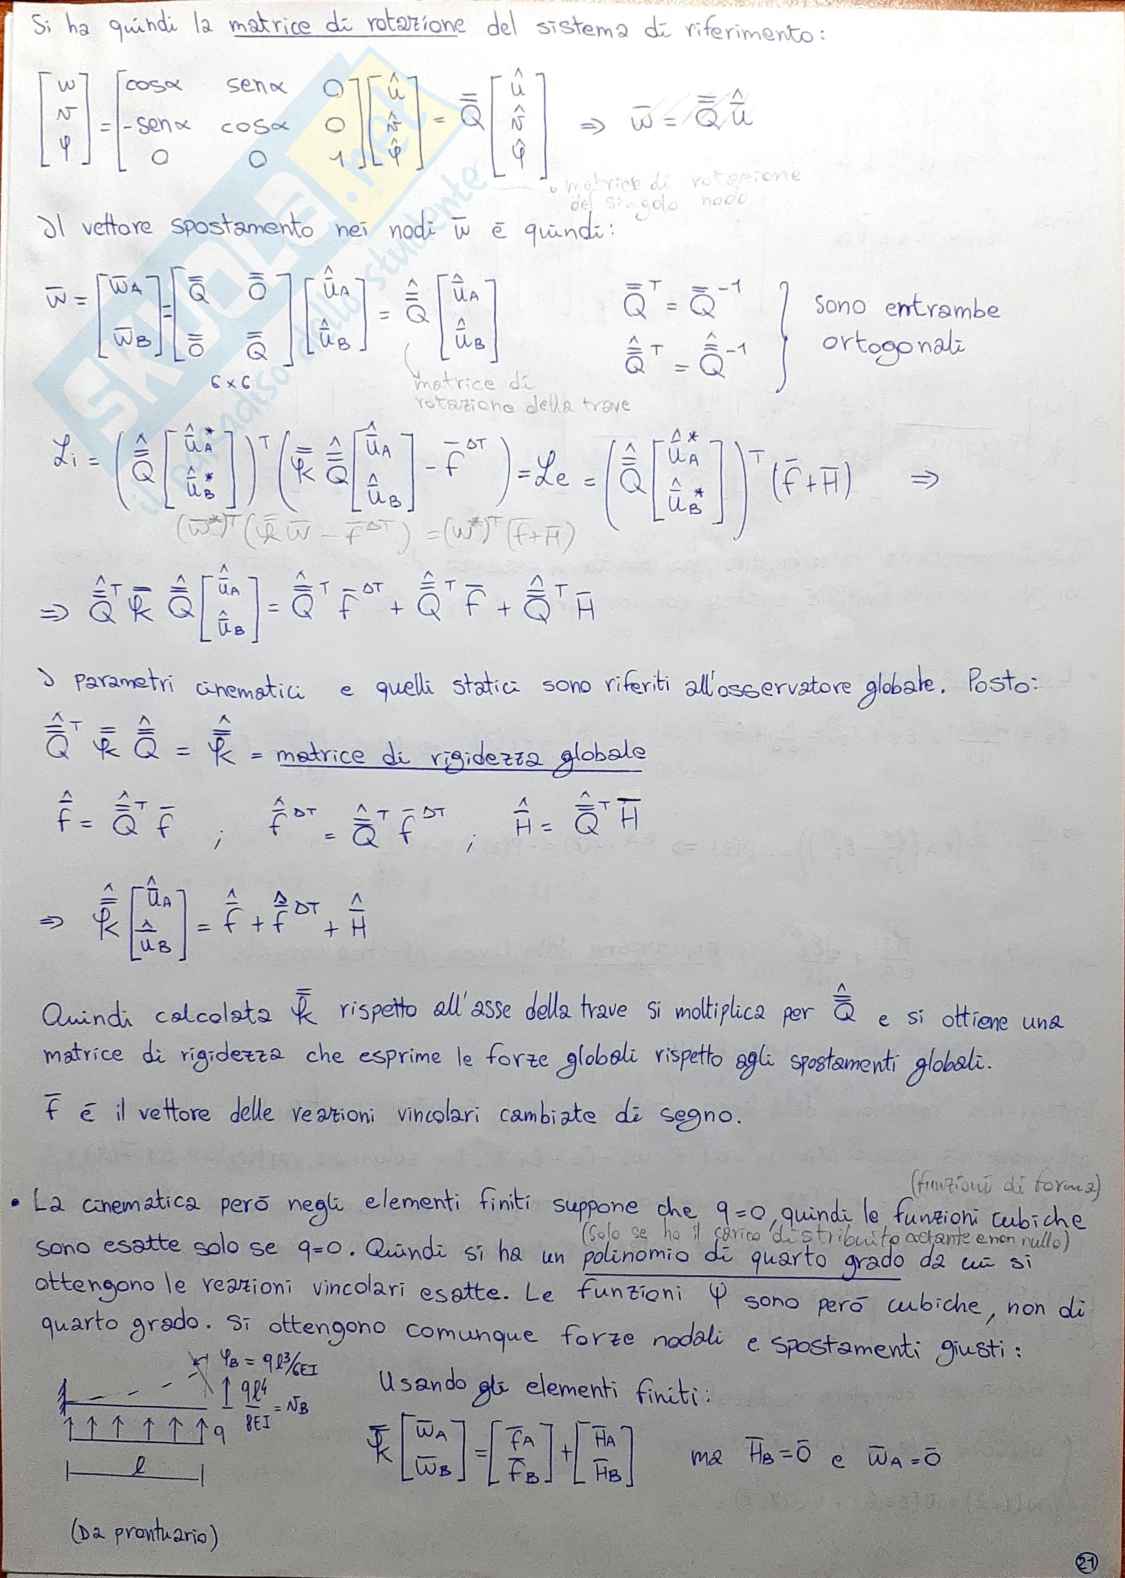 Si ha quindi la matrice di rotazione del sistema di riferimento:
[w v φ] = [cosα senα 0; -senα cosα 0; 0 0 1] [û v̂ φ̂] = Q̿ [û v̂ φ̂] ⇒ w̄ = Q̿ û̄
matrice di rotazione
del singolo nodo
Il vettore spostamento nei nodi w̄ è quindi:
w̄ = [w̄A w̄B] = [Q̿ 0̿; 0̿ Q̿] [û̄A û̄B] = Q̿̂ [û̄A û̄B]
6x6
matrice di
rotazione della trave
Q̿ᵀ = Q̿⁻¹
Q̿̂ᵀ = Q̿̂⁻¹
sono entrambe
ortogonali
ℒi = (Q̿̂ [û̄A* û̄B*])ᵀ (K̿ Q̿̂ [û̄A û̄B] - f̄ ΔT) = ℒe = (Q̿̂ [û̄A* û̄B*])ᵀ (f̄+H̄) ⇒
(w̄*)ᵀ (K̿ w̄ - f̄ ΔT) = (w̄*)ᵀ (f̄+H̄)
⇒ Q̿̂ᵀ K̿ Q̿̂ [û̄A û̄B] = Q̿̂ᵀ f̄ ΔT + Q̿̂ᵀ f̄ + Q̿̂ᵀ H̄
I parametri cinematici e quelli statici sono riferiti all'osservatore globale. Posto:
Q̿̂ᵀ K̿ Q̿̂ = K̿̂ = matrice di rigidezza globale
f̄̂ = Q̿̂ᵀ f̄ ; f̄̂ ΔT = Q̿̂ᵀ f̄ ΔT ; H̄̂ = Q̿̂ᵀ H̄
⇒ K̿̂ [û̄A û̄B] = f̄̂ + f̄̂ ΔT + H̄̂
Quindi calcolata K̿ rispetto all'asse della trave si moltiplica per Q̿̂ e si ottiene una
matrice di rigidezza che esprime le forze globali rispetto agli spostamenti globali.
f̄ è il vettore delle reazioni vincolari cambiate di segno.
(funzioni di forma)
• La cinematica però negli elementi finiti suppone che q=0, quindi le funzioni cubiche
(Solo se ho il carico distribuito costante e non nullo)
sono esatte solo se q=0. Quindi si ha un polinomio di quarto grado da cui si
ottengono le reazioni vincolari esatte. Le funzioni Ψ sono però cubiche, non di
quarto grado. Si ottengono comunque forze nodali e spostamenti giusti:
φB = ql³/6EI
ql⁴/8EI = vB
q
l
(Da prontuario)
Usando gli elementi finiti:
K̿ [w̄A w̄B] = [f̄A f̄B] + [H̄A H̄B] ma H̄B=0̄ e w̄A=0̄
21
SKUOLA.net
il paradiso dello studente